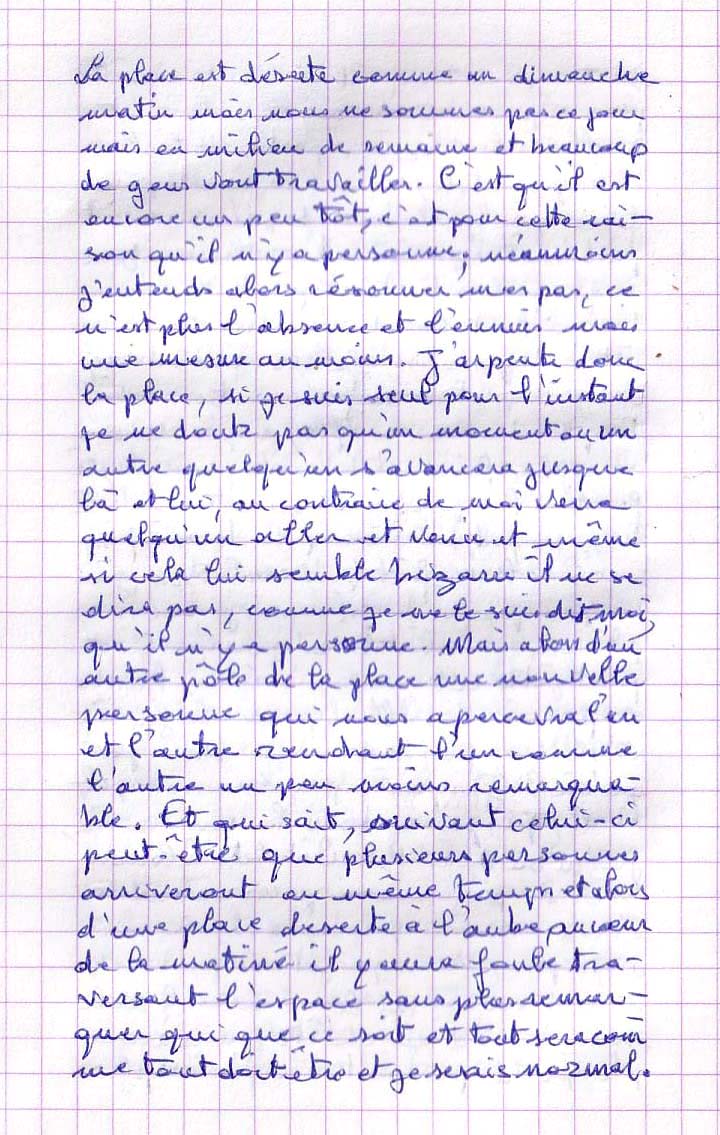 La place est déserte comme un dimanche
matin mais nous ne sommes pas ce jour
mais en milieu de semaine et beaucoup
de gens vont travailler. C'est qu'il est
encore un peu tôt, c'est pour cette rai-
son qu'il n'y a personne, néanmoins
j'entends alors résonner mes pas, ce
n'est plus l'absence et l'ennui mais
une mesure au moins. J'arpente donc
la place, si je suis seul pour l'instant
je ne doute pas qu'un moment ou un
autre quelqu'un s'avancera jusque
là et lui, au contraire de moi verra
quelqu'un aller et venir et même
si cela lui semble bizarre il ne se
dira pas, comme je me le suis dit moi,
qu'il n'y a personne. Mais alors d'un
autre pôle de la place une nouvelle
personne qui nous apercevra l'un
et l'autre rendant l'un comme
l'autre un peu moins remarqua-
ble. Et qui sait, suivant celui-ci
peut-être que plusieurs personnes
arriveront en même temps et alors
d'une place deserte à l'aube au cœur
de la matiné il y aura foule tra-
versant l'espace sans plus remar-
quer qui que ce soit et tout sera com
me tout doit être et je serais normal.